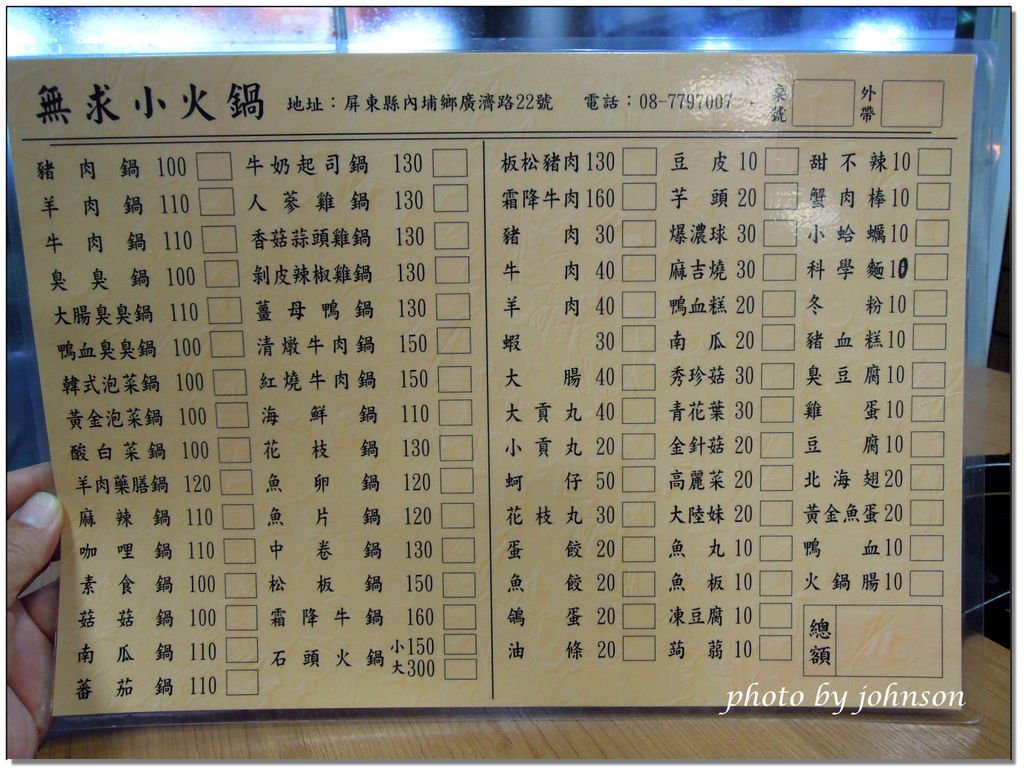 無求小火鍋 地址：屏東縣內埔鄉廣濟路22號 電話：08-7797007 桌號 外帶
豬肉鍋 100
羊肉鍋 110
牛肉鍋 110
臭臭鍋 100
大腸臭臭鍋 110
鴨血臭臭鍋 100
韓式泡菜鍋 100
黃金泡菜鍋 100
酸白菜鍋 100
羊肉藥膳鍋 120
麻辣鍋 110
咖哩鍋 110
素食鍋 100
菇菇鍋 100
南瓜鍋 110
蕃茄鍋 110
牛奶起司鍋 130
人蔘雞鍋 130
香菇蒜頭雞鍋 130
剝皮辣椒雞鍋 130
薑母鴨鍋 130
清燉牛肉鍋 150
紅燒牛肉鍋 150
海鮮鍋 110
花枝鍋 130
魚卵鍋 120
魚片鍋 120
中卷鍋 130
松板鍋 150
霜降牛鍋 160
石頭火鍋 小150 大300
板松豬肉 130
霜降牛肉 160
豬肉 30
牛肉 40
羊肉 40
蝦 30
大腸 40
大貢丸 40
小貢丸 20
蚵仔 50
花枝丸 30
蛋餃 20
魚餃 20
鴿蛋 20
油條 20
豆皮 10
芋頭 20
爆濃球 30
麻吉燒 30
鴨血糕 20
南瓜 20
秀珍菇 30
青花葉 30
金針菇 20
高麗菜 20
大陸妹 20
魚丸 10
魚板 10
凍豆腐 10
蒟蒻 10
甜不辣 10
蟹肉棒 10
小蛤蠣 10
科學麵 10
冬粉 10
豬血糕 10
臭豆腐 10
雞蛋 10
豆腐 10
北海翅 20
黃金魚蛋 20
鴨血 10
火鍋腸 10
總額
photo by johnson